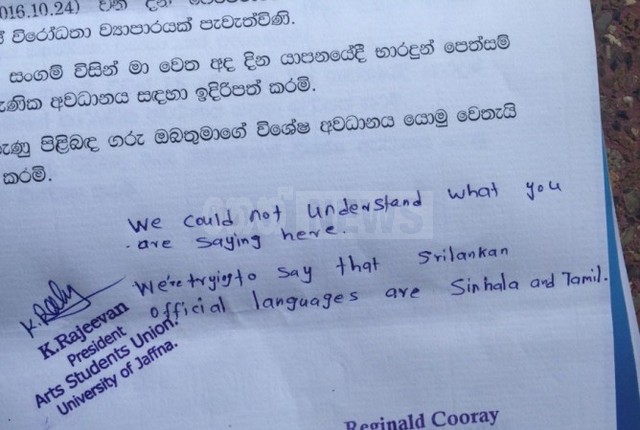 2016.10.24) වන දින
විරෝධතා ව්‍යාපාරයක් පැවැත්විණි.
සංගම් විසින් මා වෙත අද දින යාපනයේදී භාරදුන් පෙත්සම්
ණික අවධානය සඳහා ඉදිරිපත් කරමි.
ැණු පිළිබඳ ගරු ඔබතුමාගේ විශේෂ අවධානය යොමු වෙතැයි
කරමි.
We could not understand what you
are saying here.
We're trying to say that Srilankan
official languages are Sinhala and Tamil.
K.Rajeevan
President
Arts Students Union.
University of Jaffna.
NEWS
Reginald Cooray